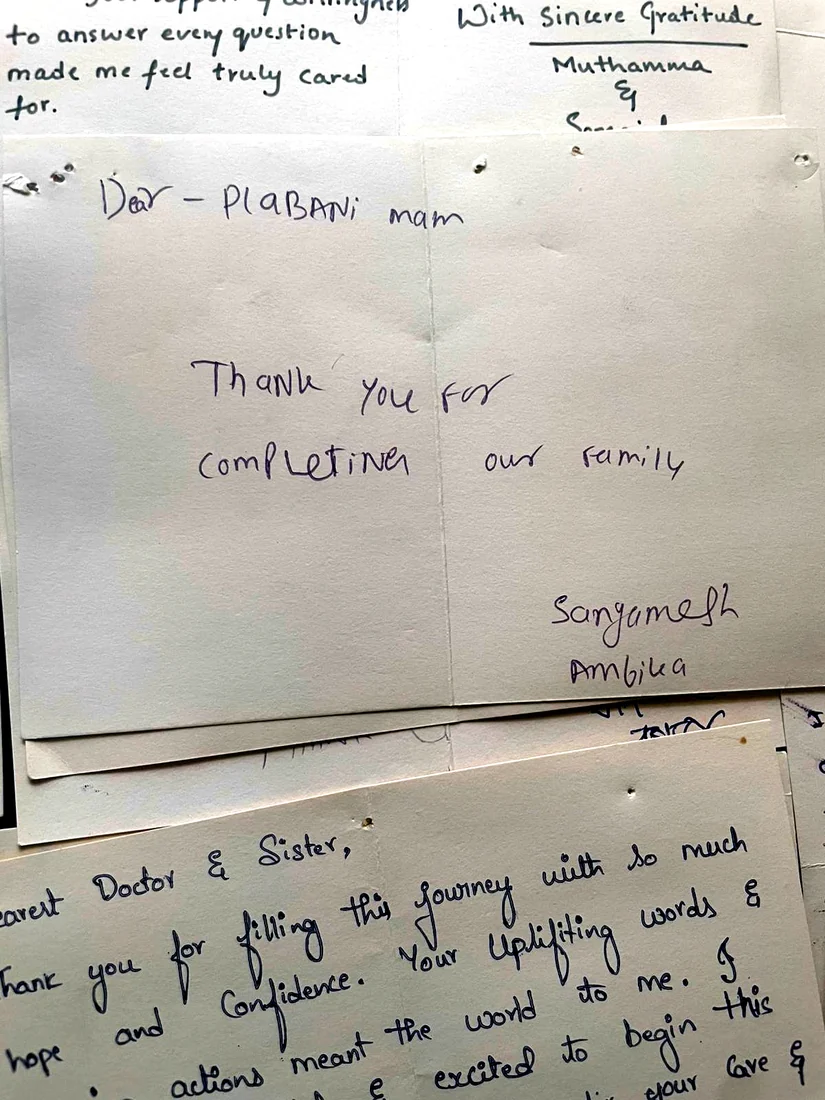 to answer every question
made me feel truly cared
for.
With Sincere Gratitude
Muthamma
&
Dear - PlaBANi mam
Thank you For
completing our Family
Sangamesh
Ambika
Doctor & Sister,
Thank you for filling this journey with so much
hope and Confidence. Your Uplifiting words &
actions meant the world to me. I
& excited to begin this
your Care &